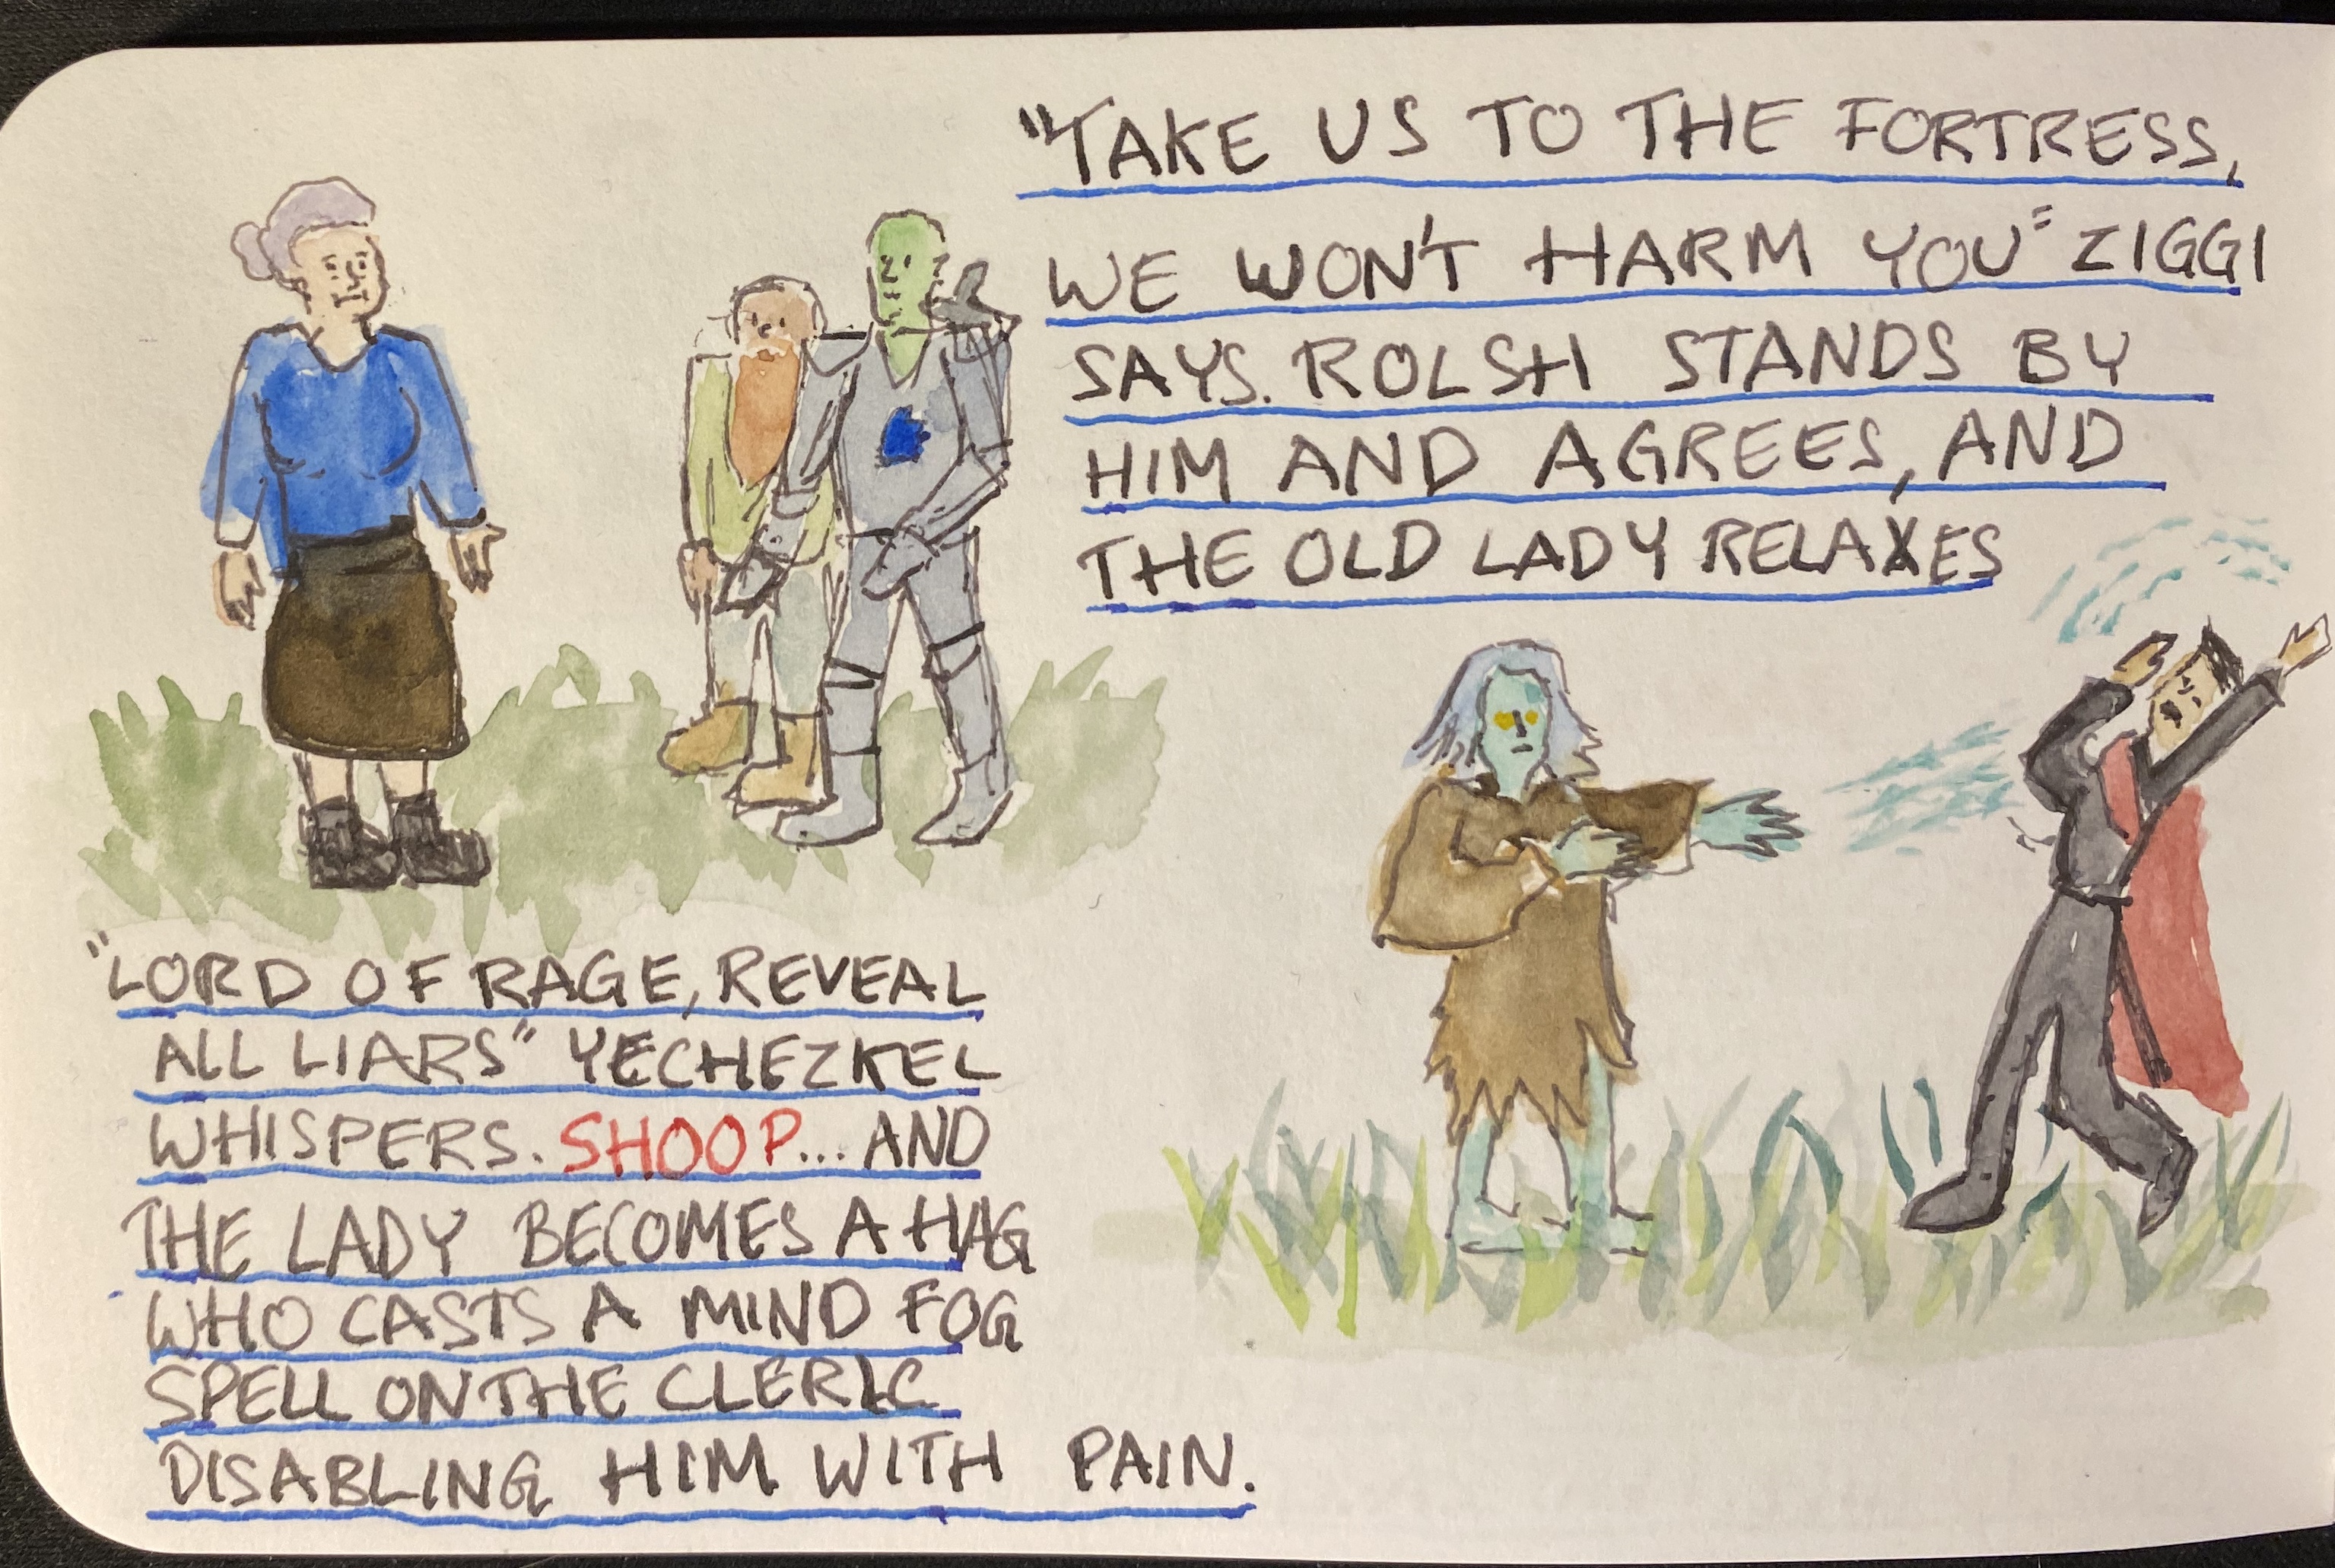 "TAKE US TO THE FORTRESS,
WE WON'T HARM YOU" ZIGGI
SAYS. ROLSH STANDS BY
HIM AND AGREES, AND
THE OLD LADY RELAXES
"LORD OF RAGE, REVEAL
ALL LIARS" YECHEZKEL
WHISPERS. SHOOP... AND
THE LADY BECOMES A HAG
WHO CASTS A MIND FOG
SPELL ON THE CLERIC
DISABLING HIM WITH PAIN.